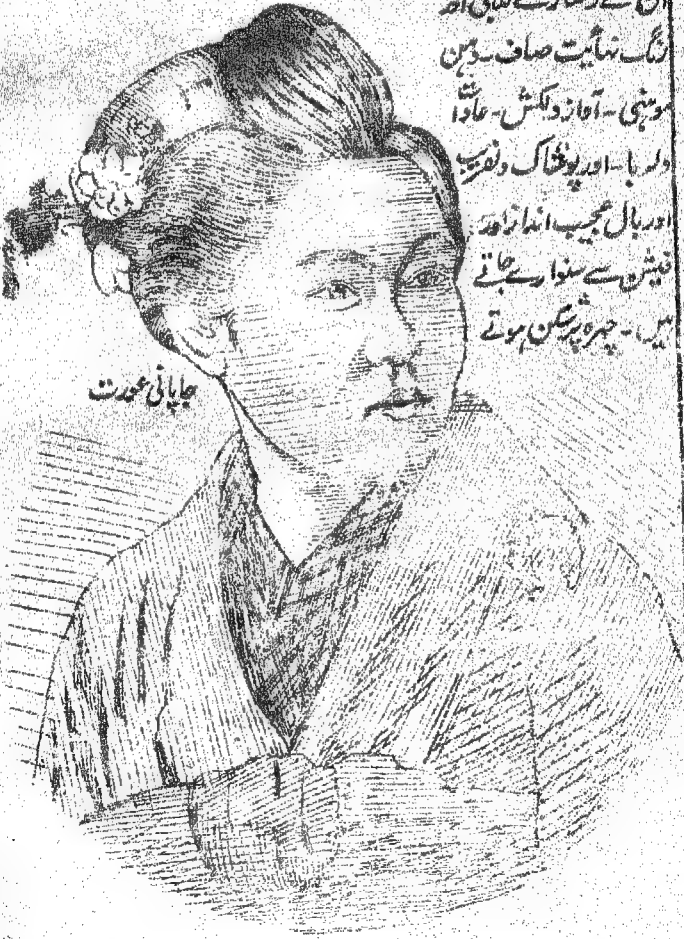 رنگ نہائیت صاف۔ دہن
موہنی۔ آواز دلکش۔ عادات
دلربا۔ اور پوشاک دلفریب
اور بال عجیب انداز اور
فیشن سے سنوارے جاتے
ہیں۔ چہرہ پر شکن ہوتے
جاپانی عورت